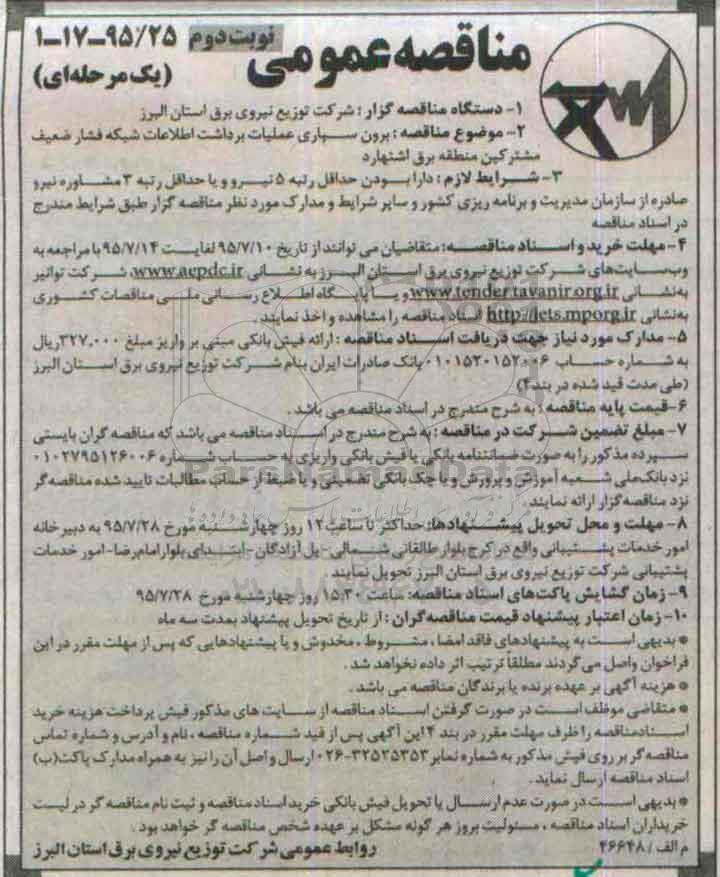 مناقصه عمومی نوبت دوم ۹۵/۲۵-۱۷-۱
(یک مرحله‌ای)
۱- دستگاه مناقصه گزار : شرکت توزیع نیروی برق استان البرز
۲- موضوع مناقصه : برون سپاری عملیات برداشت اطلاعات شبکه فشار ضعیف
مشترکین منطقه برق اشتهارد
۳- شرایط لازم : دارا بودن حداقل رتبه ۵ نیرو و یا حداقل رتبه ۳ مشاوره نیرو
صادره از سازمان مدیریت و برنامه ریزی کشور و سایر شرایط و مدارک مورد نظر مناقصه گزار طبق شرایط مندرج
در اسناد مناقصه
۴- مهلت خرید و اسناد مناقصه : متقاضیان می توانند از تاریخ ۹۵/۷/۱۰ لغایت ۹۵/۷/۱۴ با مراجعه به
وب‌سایت‌های شرکت توزیع نیروی برق استان البرز به نشانی www.aepdc.ir، شرکت توانیر
به نشانی www.tender.tavanir.org.ir و یا پایگاه اطلاع رسانی ملی مناقصات کشوری
به نشانی http://iets.mporg.ir اسناد مناقصه را مشاهده و اخذ نمایند .
۵- مدارک مورد نیاز جهت دریافت اسناد مناقصه : ارائه فیش بانکی مبنی بر واریز مبلغ ۳۲۷,۰۰۰ ریال
به شماره حساب ۰۱۰۱۵۲۰۱۵۲۰۰۶ بانک صادرات ایران بنام شرکت توزیع نیروی برق استان البرز
(طی مدت قید شده در بند ۴)
۶- قیمت پایه مناقصه : به شرح مندرج در اسناد مناقصه می باشد .
۷- مبلغ تضمین شرکت در مناقصه : به شرح مندرج در اسناد مناقصه می باشد که مناقصه گران بایستی
سپرده مذکور را به صورت ضمانتنامه بانکی یا فیش بانکی واریزی به حساب شماره ۰۱۰۲۷۹۵۱۲۶۰۰۶
نزد بانک ملی شعبه آموزش و پرورش و یا چک بانکی تضمینی و یا ضبط از حساب مطالبات تایید شده مناقصه گر
نزد مناقصه گزار ارائه نمایند .
۸- مهلت و محل تحویل پیشنهادها: حداکثر تا ساعت ۱۲ روز چهارشنبه مورخ ۹۵/۷/۲۸ به دبیر خانه
امور خدمات پشتیبانی واقع در کرج بلوار طالقانی شمالی - پل آزادگان - ابتدای بلوار امام رضا - امور خدمات
پشتیبانی شرکت توزیع نیروی برق استان البرز تحویل نمایند
۹- زمان گشایش پاکت‌های اسناد مناقصه: ساعت ۱۵:۳۰ روز چهارشنبه مورخ ۹۵/۷/۲۸
۱۰- زمان اعتبار پیشنهاد قیمت مناقصه گران : از تاریخ تحویل پیشنهاد بمدت سه ماه
* بدیهی است به پیشنهادهای فاقد امضا ، مشروط ، مخدوش و یا پیشنهادهایی که پس از مهلت مقرر در این
فراخوان واصل می گردند مطلقاً ترتیب اثر داده نخواهد شد .
* هزینه آگهی بر عهده برنده یا برندگان مناقصه می باشد .
* متقاضی موظف است در صورت گرفتن اسناد مناقصه از سایت های مذکور فیش پرداخت هزینه خرید
اسناد مناقصه را ظرف مهلت مقرر در بند ۴ این آگهی پس از قید شماره مناقصه ، نام و آدرس و شماره تماس
مناقصه گر بر روی فیش مذکور به شماره نمابر ۳۲۵۲۵۳۵۳-۰۲۶ ارسال و اصل آن را نیز به همراه مدارک پاکت (ب)
اسناد مناقصه ارسال نماید .
* بدیهی است در صورت عدم ارسال یا تحویل فیش بانکی خرید اسناد مناقصه و ثبت نام مناقصه گر در لیست
خریداران اسناد مناقصه ، مسئولیت بروز هر گونه مشکل بر عهده شخص مناقصه گر خواهد بود .
م الف / ۴۶۶۴۸ روابط عمومی شرکت توزیع نیروی برق استان البرز
ParsNamadData